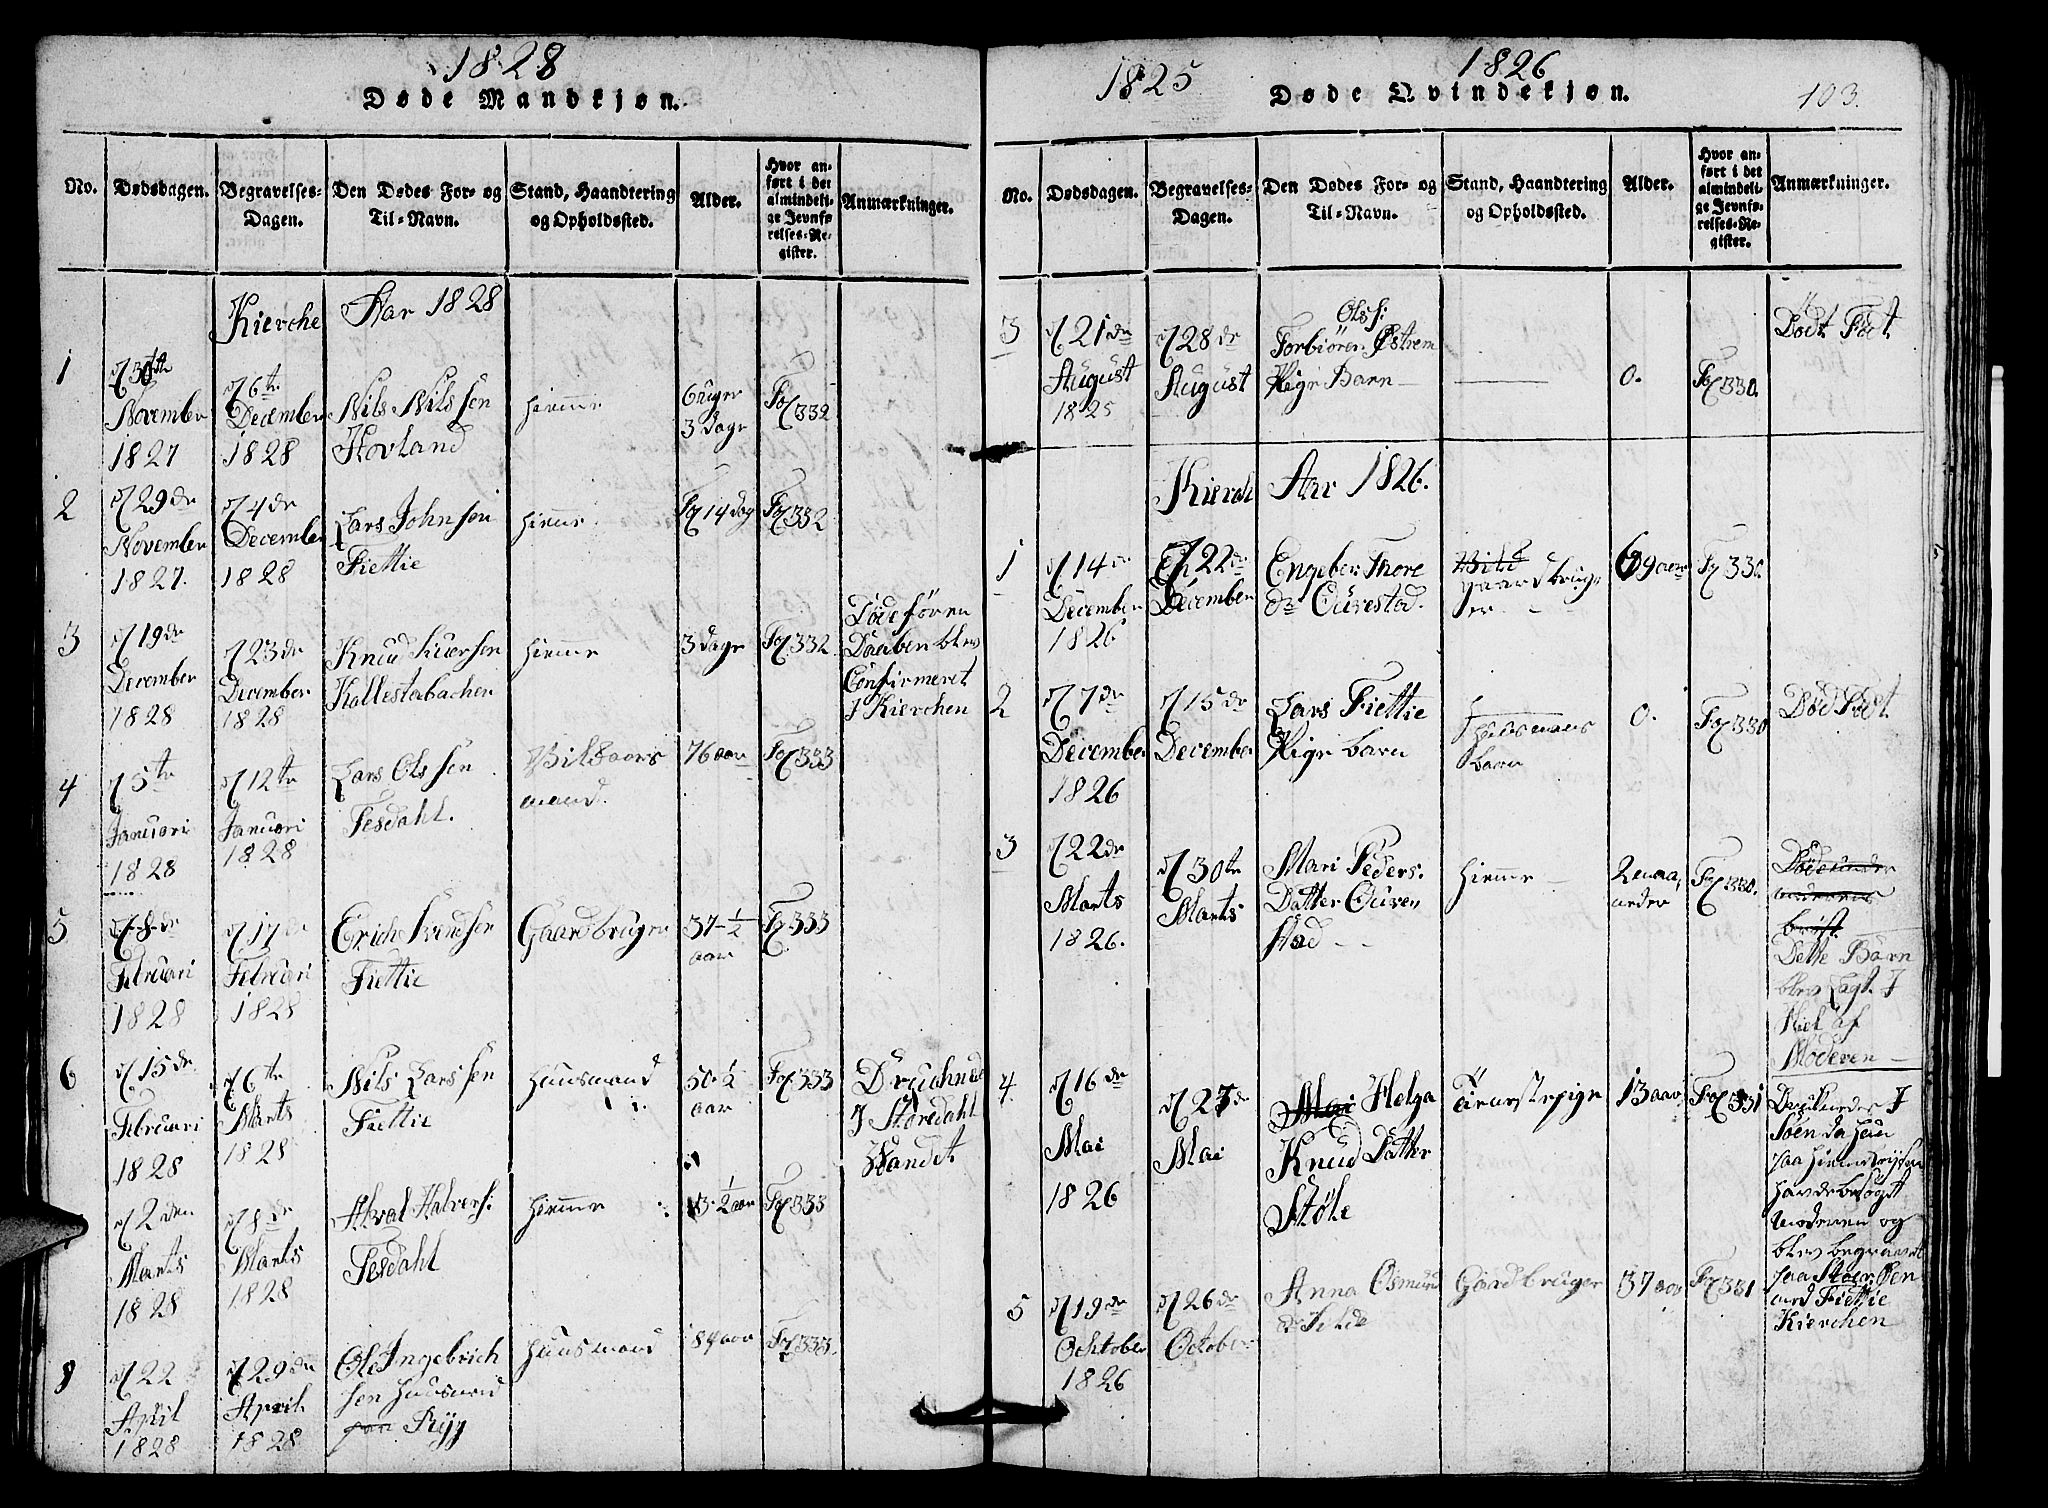 1828
Døde Mandkjøn.
No.
Dødsdagen.
Begravelses-
Dagen.
Den Dødes For- og
Til-Navn.
Stand, Haandtering
og Opholdssted.
Alder.
Hvor an-
ført i det
almindeli-
ge Jevnfø-
relses-Re-
gister.
Anmærkninger.
Kierche Aar 1828
1
30te
November
1827
6te
December
1828
Nils Nilssen
Hovland
hiemme
6 uger
3 dage
Fol 332
2
29de
November
1827.
4de
December
1828
Lars Johnsen
Fiettie
hieme
14 dag
Fol 332
3
19de
December
1828
23de
December
1828
Knud Iversen
Kallestabachen
hiemme
3 dage
Fol 332
Døde føren
Daaben blev
Confirmeret
I Kierchen
4
5te
Januari
1828
12te
Januari
1828
Lars Olssen
Tesdahl.
mand.
76 aar
Fol 333
5
8de
Februari
1828
17de
Februari
1828
Erich Svendsen
Fiettie
Gaardbruger
37-1/2
aar
Fol 333
6
15de
Februari
1828
6te
Marts
1828
Nils Larssen
Fiettie
Huusmand
50-1/2
aar
Fol 333
Druchned
I Storedahl
Vandet
7
2den
Marts
1828
8de
Marts
1828
Halvers:
Tesdahl
hiemme
13-1/2 aar
Fol 333
8
22
April
1828
29de
April
1828
Ole Ingebrich
sen Huusmand
Ryg
Huusmand
84 aar
Fol 333.
1825
1826
Døde Qvindekjøn.
103.
No.
Dødsdagen.
Begravelses-
Dagen.
Den Dødes For- og
Til-Navn.
Stand, Haandtering
og Opholdssted.
Alder.
Hvor an-
ført i det
almindeli-
ge Jevnfø-
relses-Re-
gister.
Anmærkninger.
3
21de
August
1825
28de
August
Olss:
Torbiören Østrem
Pige Barn
0.
Fol 330.
Dødt Født
Kierch Aar 1826.
1
14de
December
1826
22de
December
Engebor Thore
dr Ourestad.
gaardbrug
er
69 aar
Fol 330.
2
7de
December
1826
15de
December
Lars Fiettie
Pige barn
Huusmands
barn
0.
Fol 330
Død Født
3
22de
Marts
1826.
30te
Marts
Mari Peders.
Datter Ouren
stad
hiemme
2 maa,
neder
Fol 330.
Døde under
moderens
bryst.
Dette Barn
blev Lagt I
hiel af
Moderen
4.
16de
Mai
1826
23de
Mai
Mari Helga
Knud Datter
Støle
Tienestepige
13 aar
Fol 331
Druknedes I
Søen da hun
paa hiemreysen
havde besøgt
moderen og
blev begravet
paa
ved Fiettie
Kierchen
5
19de
Ochtober
1826
26de
October
Anna Osmund
Gaardbruger
37 aar
Fol 331